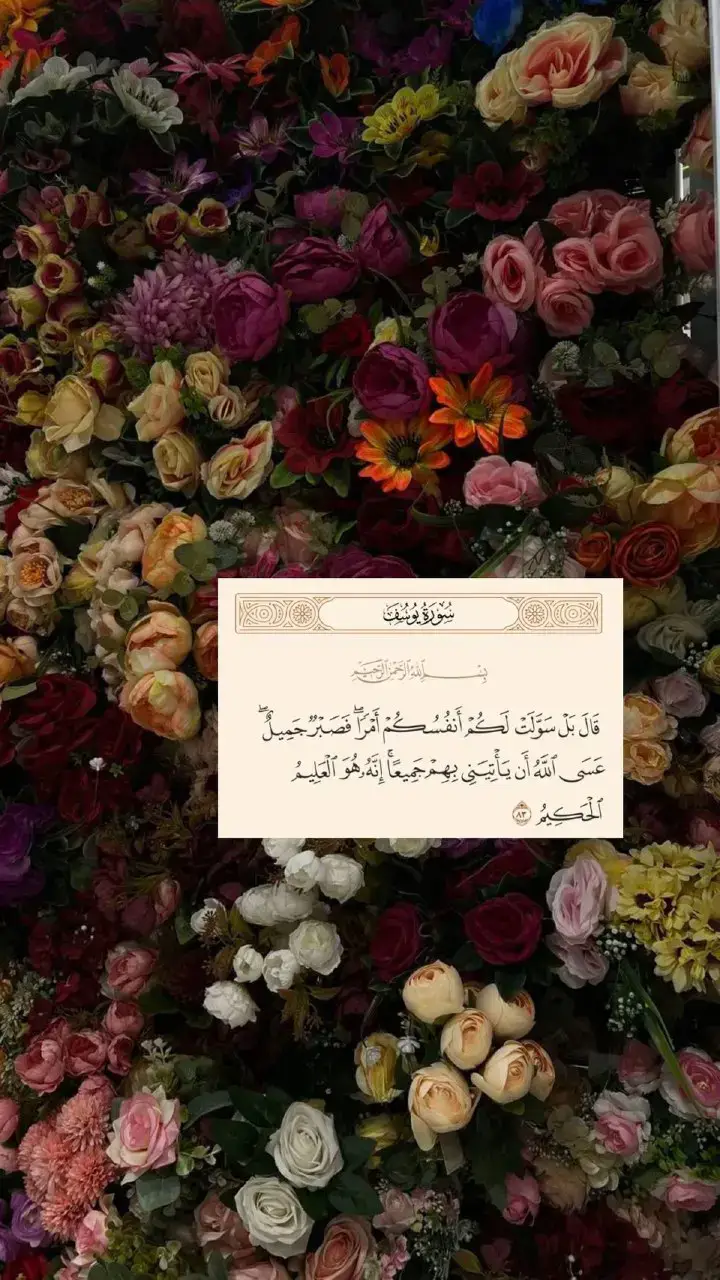 سُورَةُ يُوسُفَ
بِسْمِ ٱللَّهِ ٱلرَّحْمَٰنِ ٱلرَّحِيمِ
قَالَ بَلْ سَوَّلَتْ لَكُمْ أَنفُسُكُمْ أَمْرًاۖ فَصَبْرٌ جَمِيلٌۖ
عَسَى ٱللَّهُ أَن يَأْتِيَنِي بِهِمْ جَمِيعًاۚ إِنَّهُۥ هُوَ ٱلْعَلِيمُ
ٱلْحَكِيمُ ٨٣